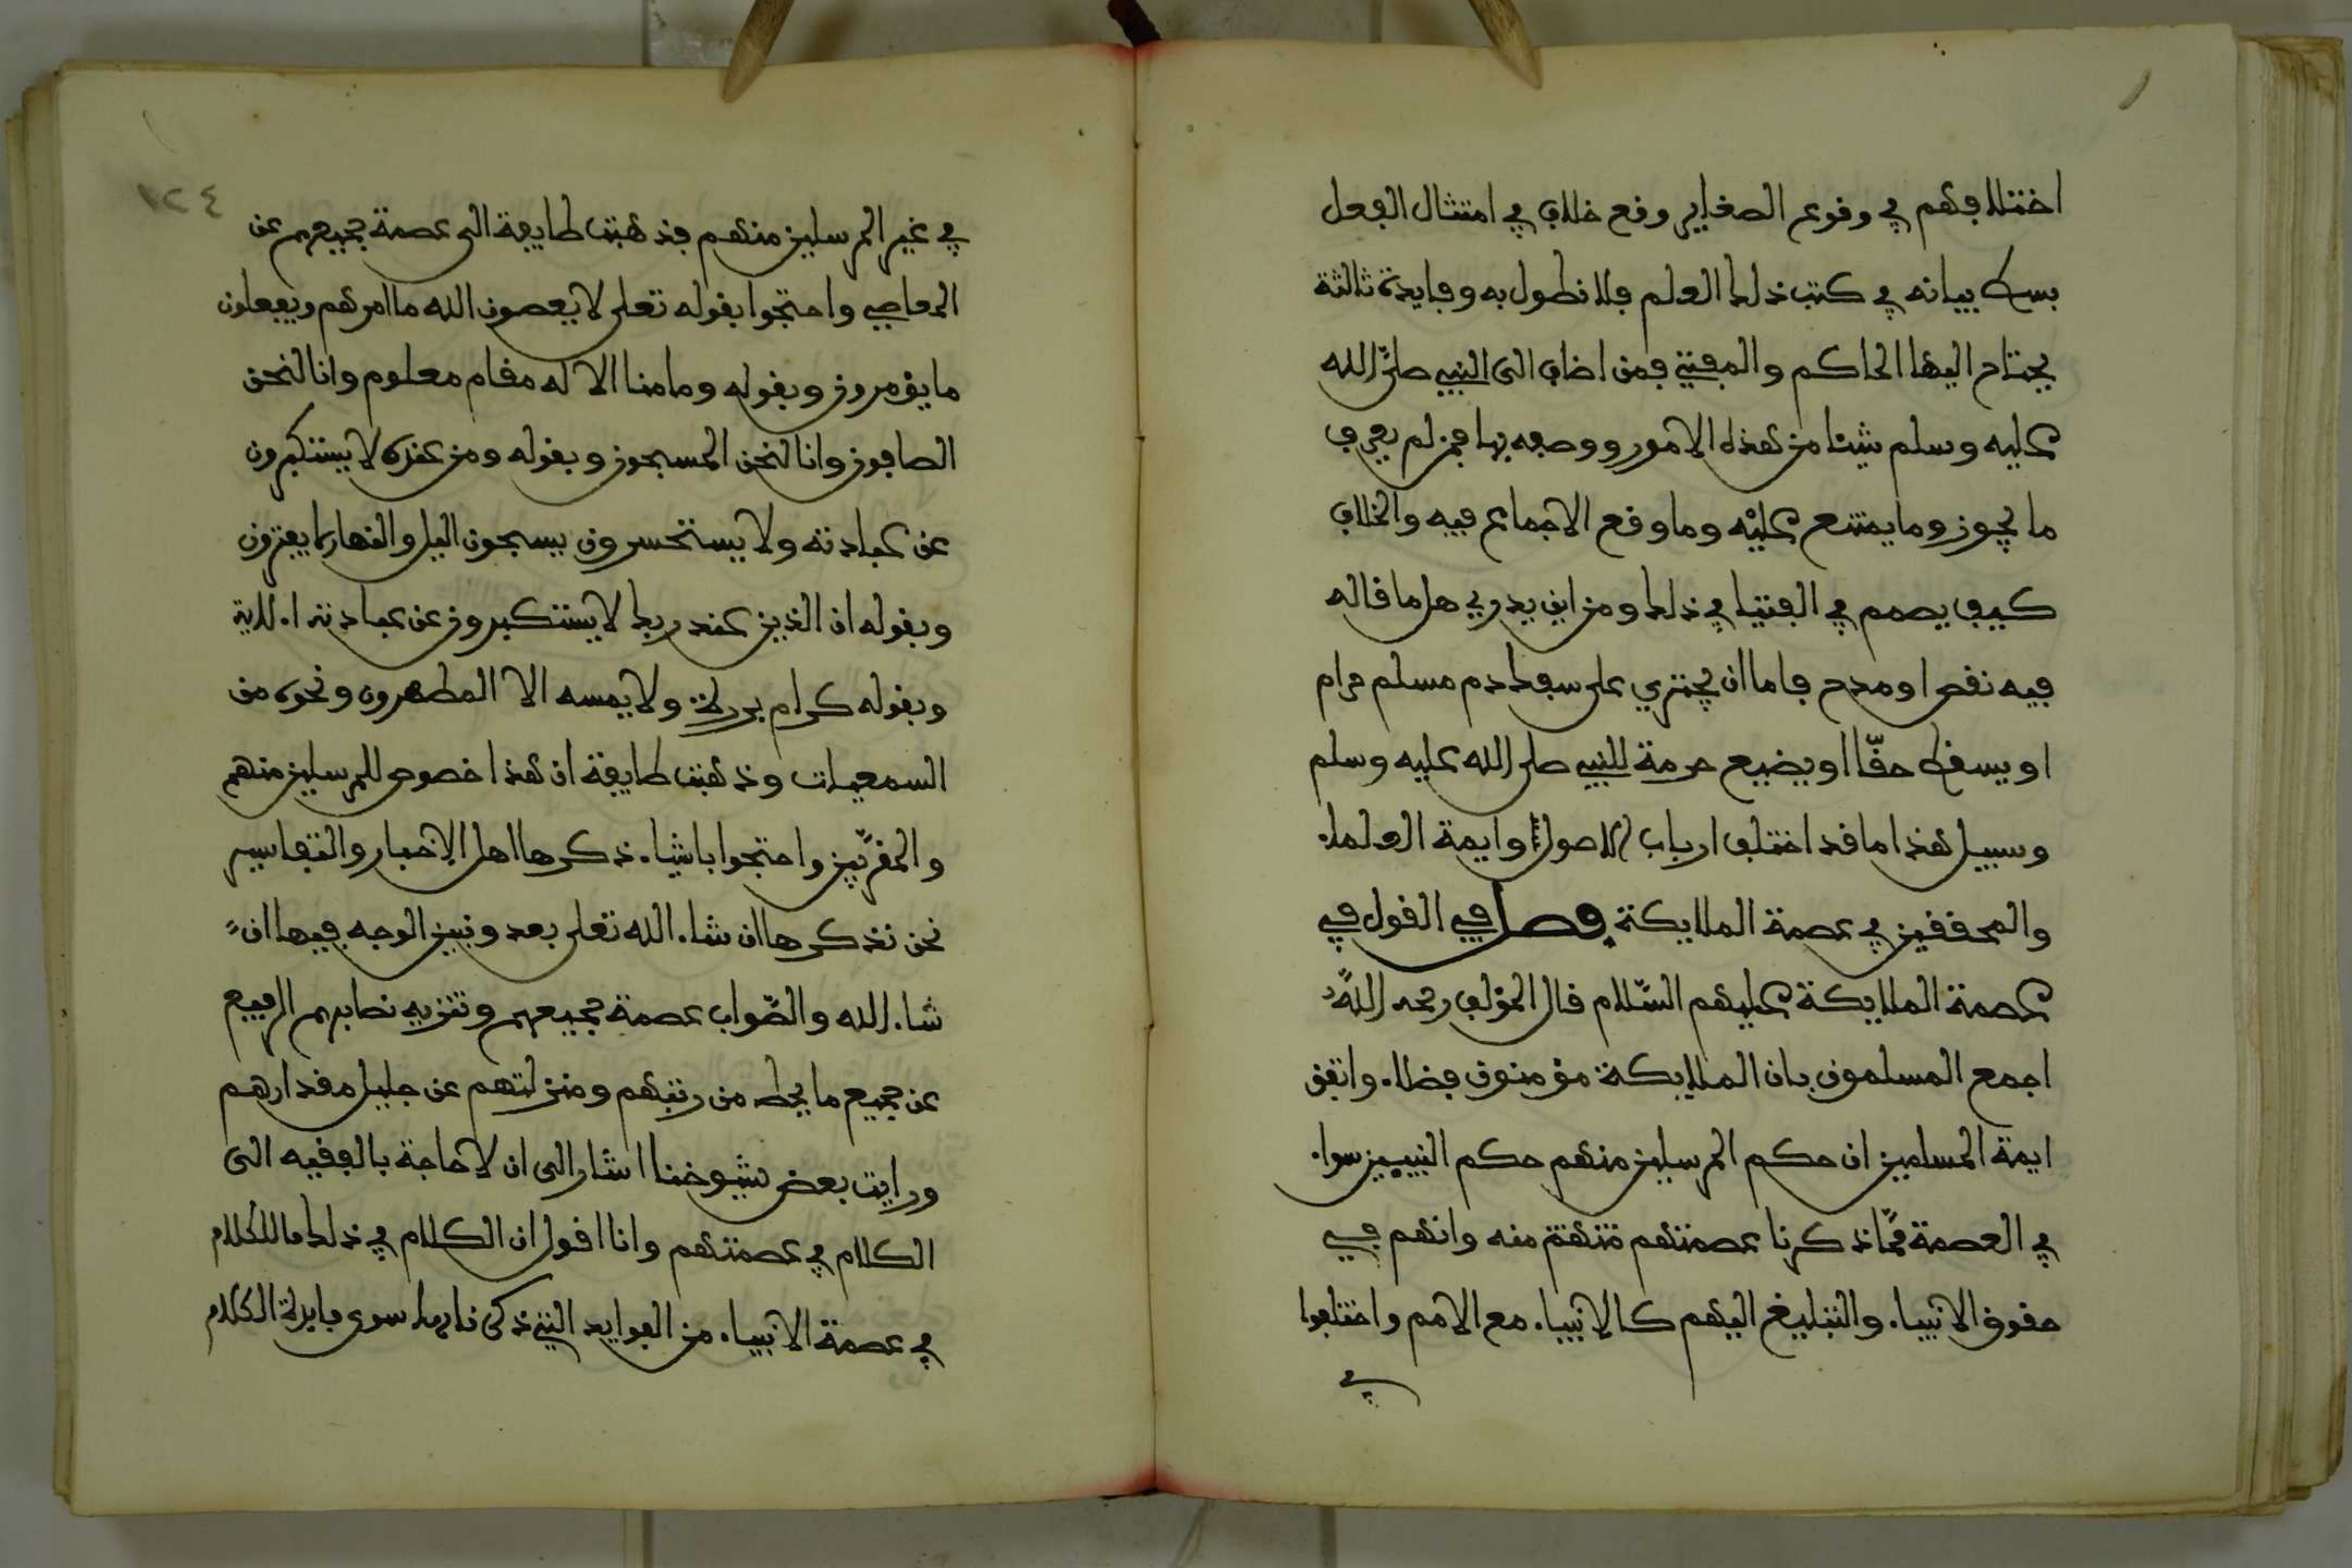 اختلافهم في وقوع الصغاير وقع خلاف في امتثال الفعل
بسط بيانه في كتب ذلك العلم فلا نطول به وفايدة ثالثة
يحتاج اليها الحاكم والمفتي فمن اضاف الى النبي صلى الله
عليه وسلم شيئا من هذه الامور ووصفه بها فمن لم يعرف
ما يجوز وما يمتنع عليه وما وقع الاجماع فيه والخلاف
كيف يصمم في الفتيا في ذلك ومن اين يدري هل ما قاله
فيه نقص او مدح فاما ان يجتري على سفك دم مسلم حرام
او يسقط حقا او يضيع حرمة للنبي صلى الله عليه وسلم
وسبيل هذا ما قد اختلف ارباب الاصول وايمة العلماء
والمحققين في عصمة الملايكة فصل في القول في
عصمة الملايكة عليهم السلام قال المؤلف رحمه الله
اجمع المسلمون بان الملايكة مؤمنون فضلاء واتفق
ايمة المسلمين ان حكم المرسلين منهم حكم النبيين سواء
في العصمة مما ذكرنا عصمتهم منه وانهم في
حقوق الانبياء والتبليغ اليهم كالانبياء مع الامم واختلفوا
في
١٢٤
في غير المرسلين منهم فذهبت طايفة الى عصمة جميعهم عن
المعاصي واحتجوا بقوله تعلى لا يعصون الله ما امرهم ويفعلون
ما يؤمرون وبقوله وما منا الا له مقام معلوم وانا لنحن
الصافون وانا لنحن المسبحون وبقوله ومن عنده لا يستكبرون
عن عبادته ولا يستحسرون يسبحون اليل والنهار لا يفترون
وبقوله ان الذين عند ربك لا يستكبرون عن عبادته الاية
وبقوله كرام بررة ولا يمسه الا المطهرون ونحوه من
السمعيات وذهبت طايفة ان هذا خصوص للمرسلين منهم
والمقربين واحتجوا باشياء ذكرها اهل الاخبار والتفاسير
نحن نذكرها ان شاء الله تعلى بعد ونبين الوجه فيها ان
شاء الله والصواب عصمة جميعهم وتنزيه نصابهم الرفيع
عن جميع ما يحط من رتبتهم ومنزلتهم عن جليل مقدارهم
ورايت بعض شيوخنا اشار الى ان لا حاجة بالفقيه الى
الكلام في عصمتهم وانا اقول ان الكلام في ذلك ما للكلام
في عصمة الانبياء من الفوايد التي ذكرناها سوى فايدة الكلام